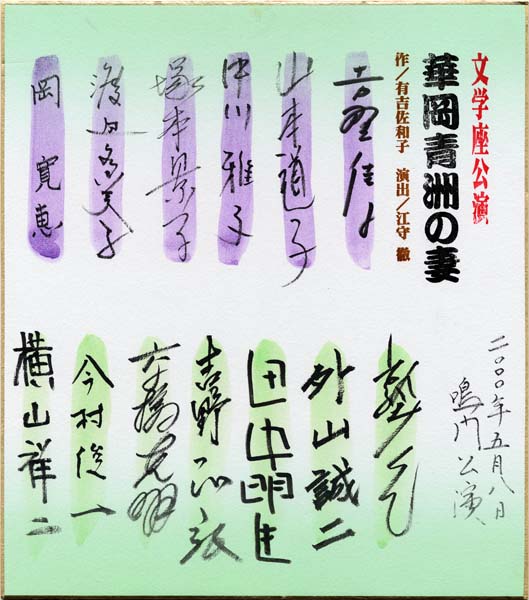 文学座公演
華岡青洲の妻
作／有吉佐和子 演出／江守 徹
吉野佳子
山本道子
中川雅子
塚本景子
渡辺多美子
岡 寛恵
二〇〇〇年五月八日
鳴門公演
外山誠二
田中明生
吉野正弘
大原康裕
今村俊一
横山祥二